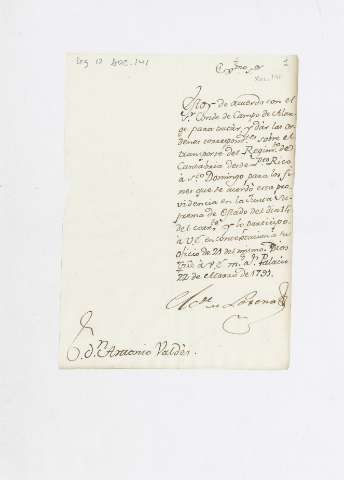 Leg 12 Doc. 141
1
Exmo. Sor.
Doc. 141
Estoy de acuerdo con el
Sr. Conde de Campo de Alan-
ge para tratar, y dar las or-
denes correspondtes. sobre el
transporte del Regimto. de
Cantabria desde Pto. Rico
á Sto. Domingo para los fi-
nes que se acordó esta pro-
videncia en la Junta Su-
prema de Estado del dia
del corrte. y lo participo
á V.E. en contextacion á su
oficio de 21 del mismo. Dios
gue. á V.E. ms. as. Palacio
22 de Marzo de 1791.
El Cde. de Lerena
S. Dn. Antonio Valdés.